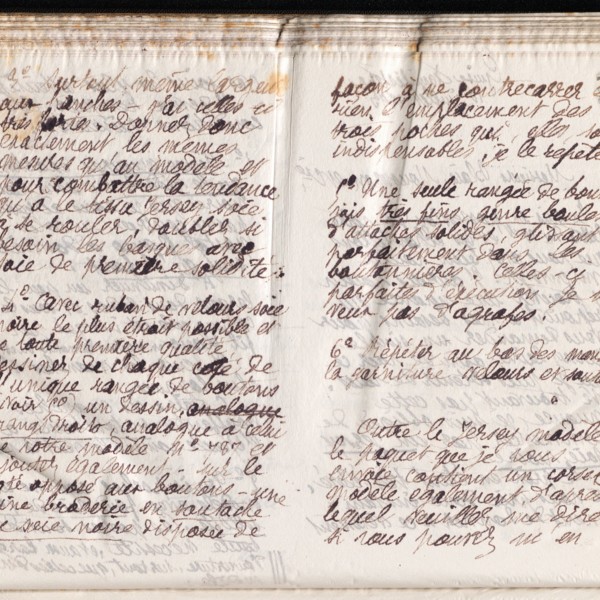 3º Surtout même largeur
aux hanches - j'ai celles-ci
très fortes. Donner donc
exactement les mêmes
mesures qu'au modèle et
pour combattre la tendance
qu'a le tissu jersey soie
à se rouler, doubler si
besoin les basques avec
soie de première solidité -
4º (avec ruban de velours soie
noire le plus étroit possible et
de toute première qualité
dessiner de chaque côté de
l'unique rangée de boutons
un dessin analogue
rangs droits, analogue à celui
de notre modèle nº 787 et
ajouter également - sur le
côté opposé aux boutons - une
fine broderie en soutache
de soie noire disposée de
façon à ne contrecarrer en
rien l'emplacement des
trois poches qui, elles sont
indispensables, je le répète
5º Une seule rangée de boutons
jais très fins, genre boules
d'attaches solides, glissant
parfaitement dans les
boutonnières. Celles-ci
parfaites d'exécution. Je ne
veux pas d'agrafes.
6º Répéter au bas des manches
la garniture velours et soutache
Outre le jersey modèle
le paquet que je vous
envoie contient un corsage
modèle également d'après
lequel veuillez me dire
si vous pouvez m'en